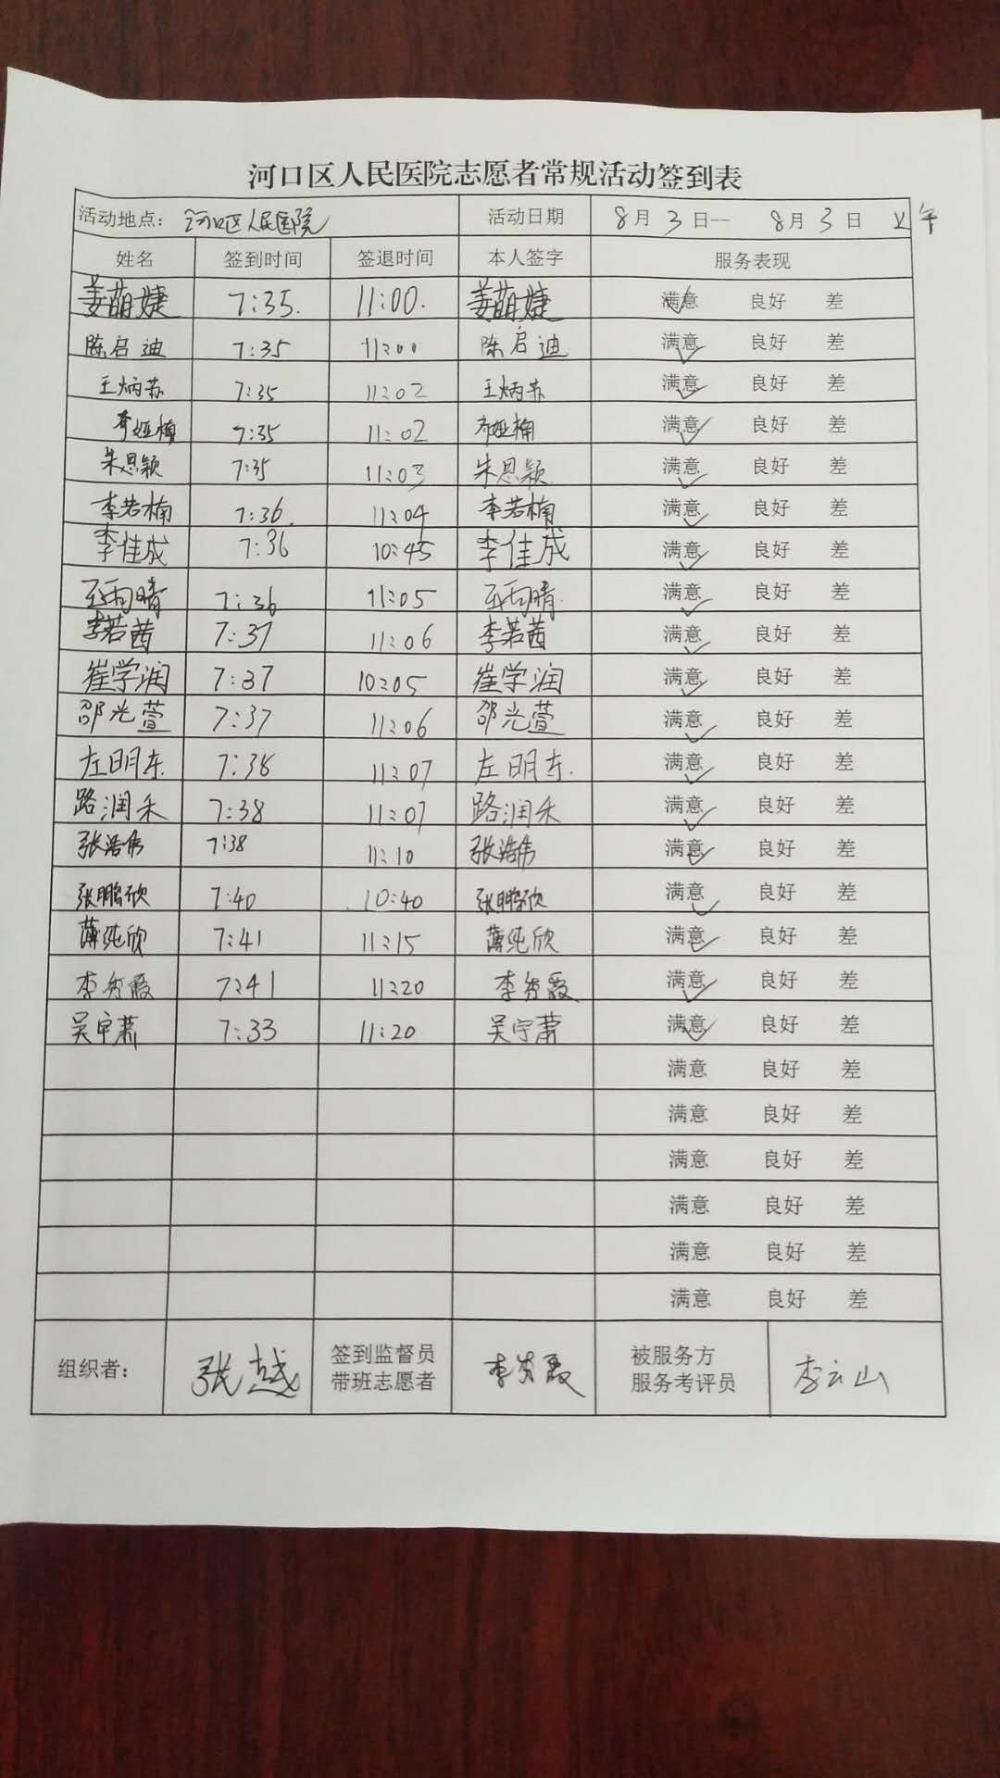 河口区人民医院志愿者常规活动签到表
活动地点: 河口区人民医院 活动日期 8月3日— 8月3日 上午
姓名 签到时间 签退时间 本人签字 服务表现
姜萌婕 7:35. 11:00. 姜萌婕 满意 良好 差
陈启迪 7:35 11:00 陈启迪 满意 良好 差
王炳苏 7:35 11:02 王炳苏 满意 良好 差
7:35 11:02 满意 良好 差
朱恩颖 7:35 11:03 朱恩颖 满意 良好 差
李若楠 7:36. 11:04 李若楠 满意 良好 差
李佳成 7:36 10:45 李佳成 满意 良好 差
7:36 11:05 满意 良好 差
李若茜 7:37 11:06 李若茜 满意 良好 差
崔学润 7:37 10:05 崔学润 满意 良好 差
邵光萱 7:37 11:06 邵光萱 满意 良好 差
左明东. 7:38 11:07 左明东. 满意 良好 差
路润禾 7:38 11:07 路润禾 满意 良好 差
张浩伟 7:38 11:10 张浩伟 满意 良好 差
张鹏欣 7:40 10:40 张鹏欣 满意 良好 差
薄纯欣 7:41 11:15 薄纯欣 满意 良好 差
7:41 11:20 满意 良好 差
吴宇萧 7:33 11:20 吴宇萧 满意 良好 差
满意 良好 差
满意 良好 差
满意 良好 差
满意 良好 差
满意 良好 差
满意 良好 差
组织者: 张越 签到监督员 被服务方
带班志愿者 服务考评员 李云山